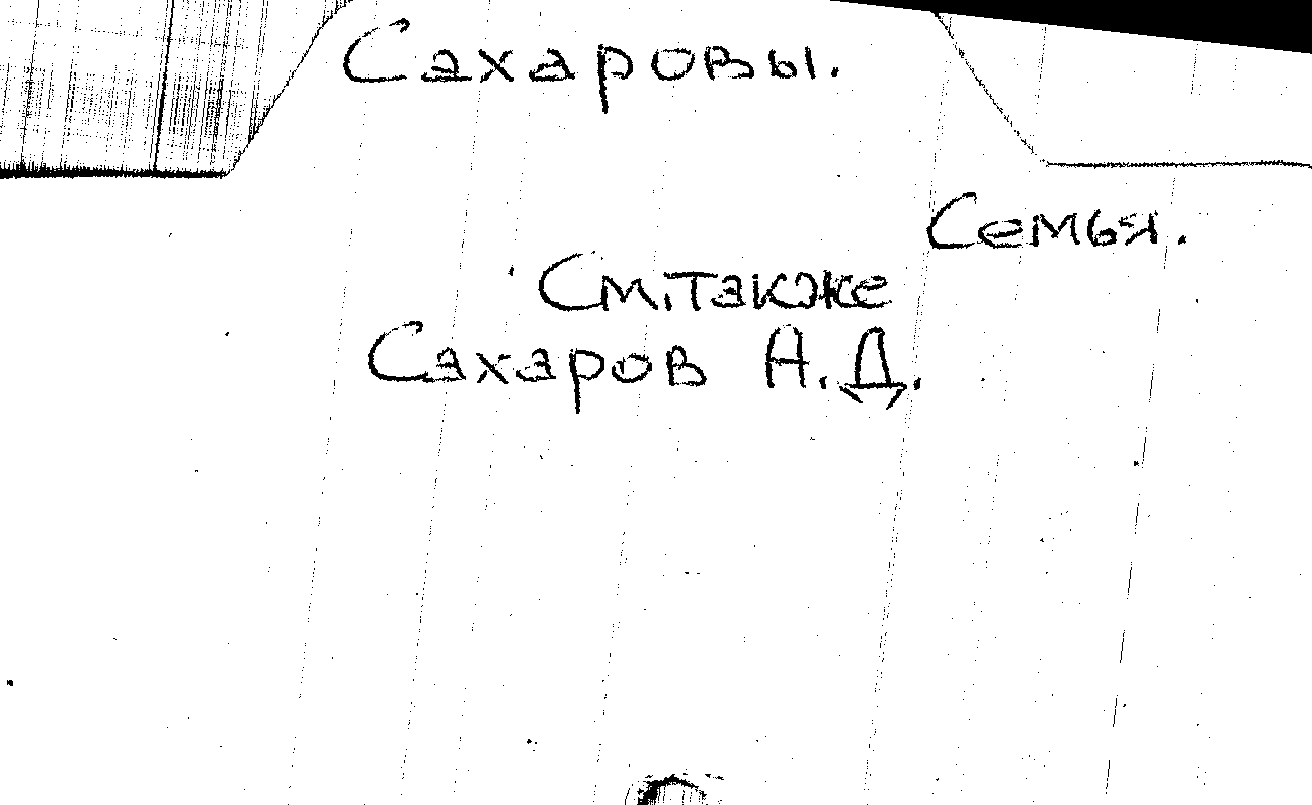 Сахаровы.
Семья.
См. также
Сахаров А.Д.